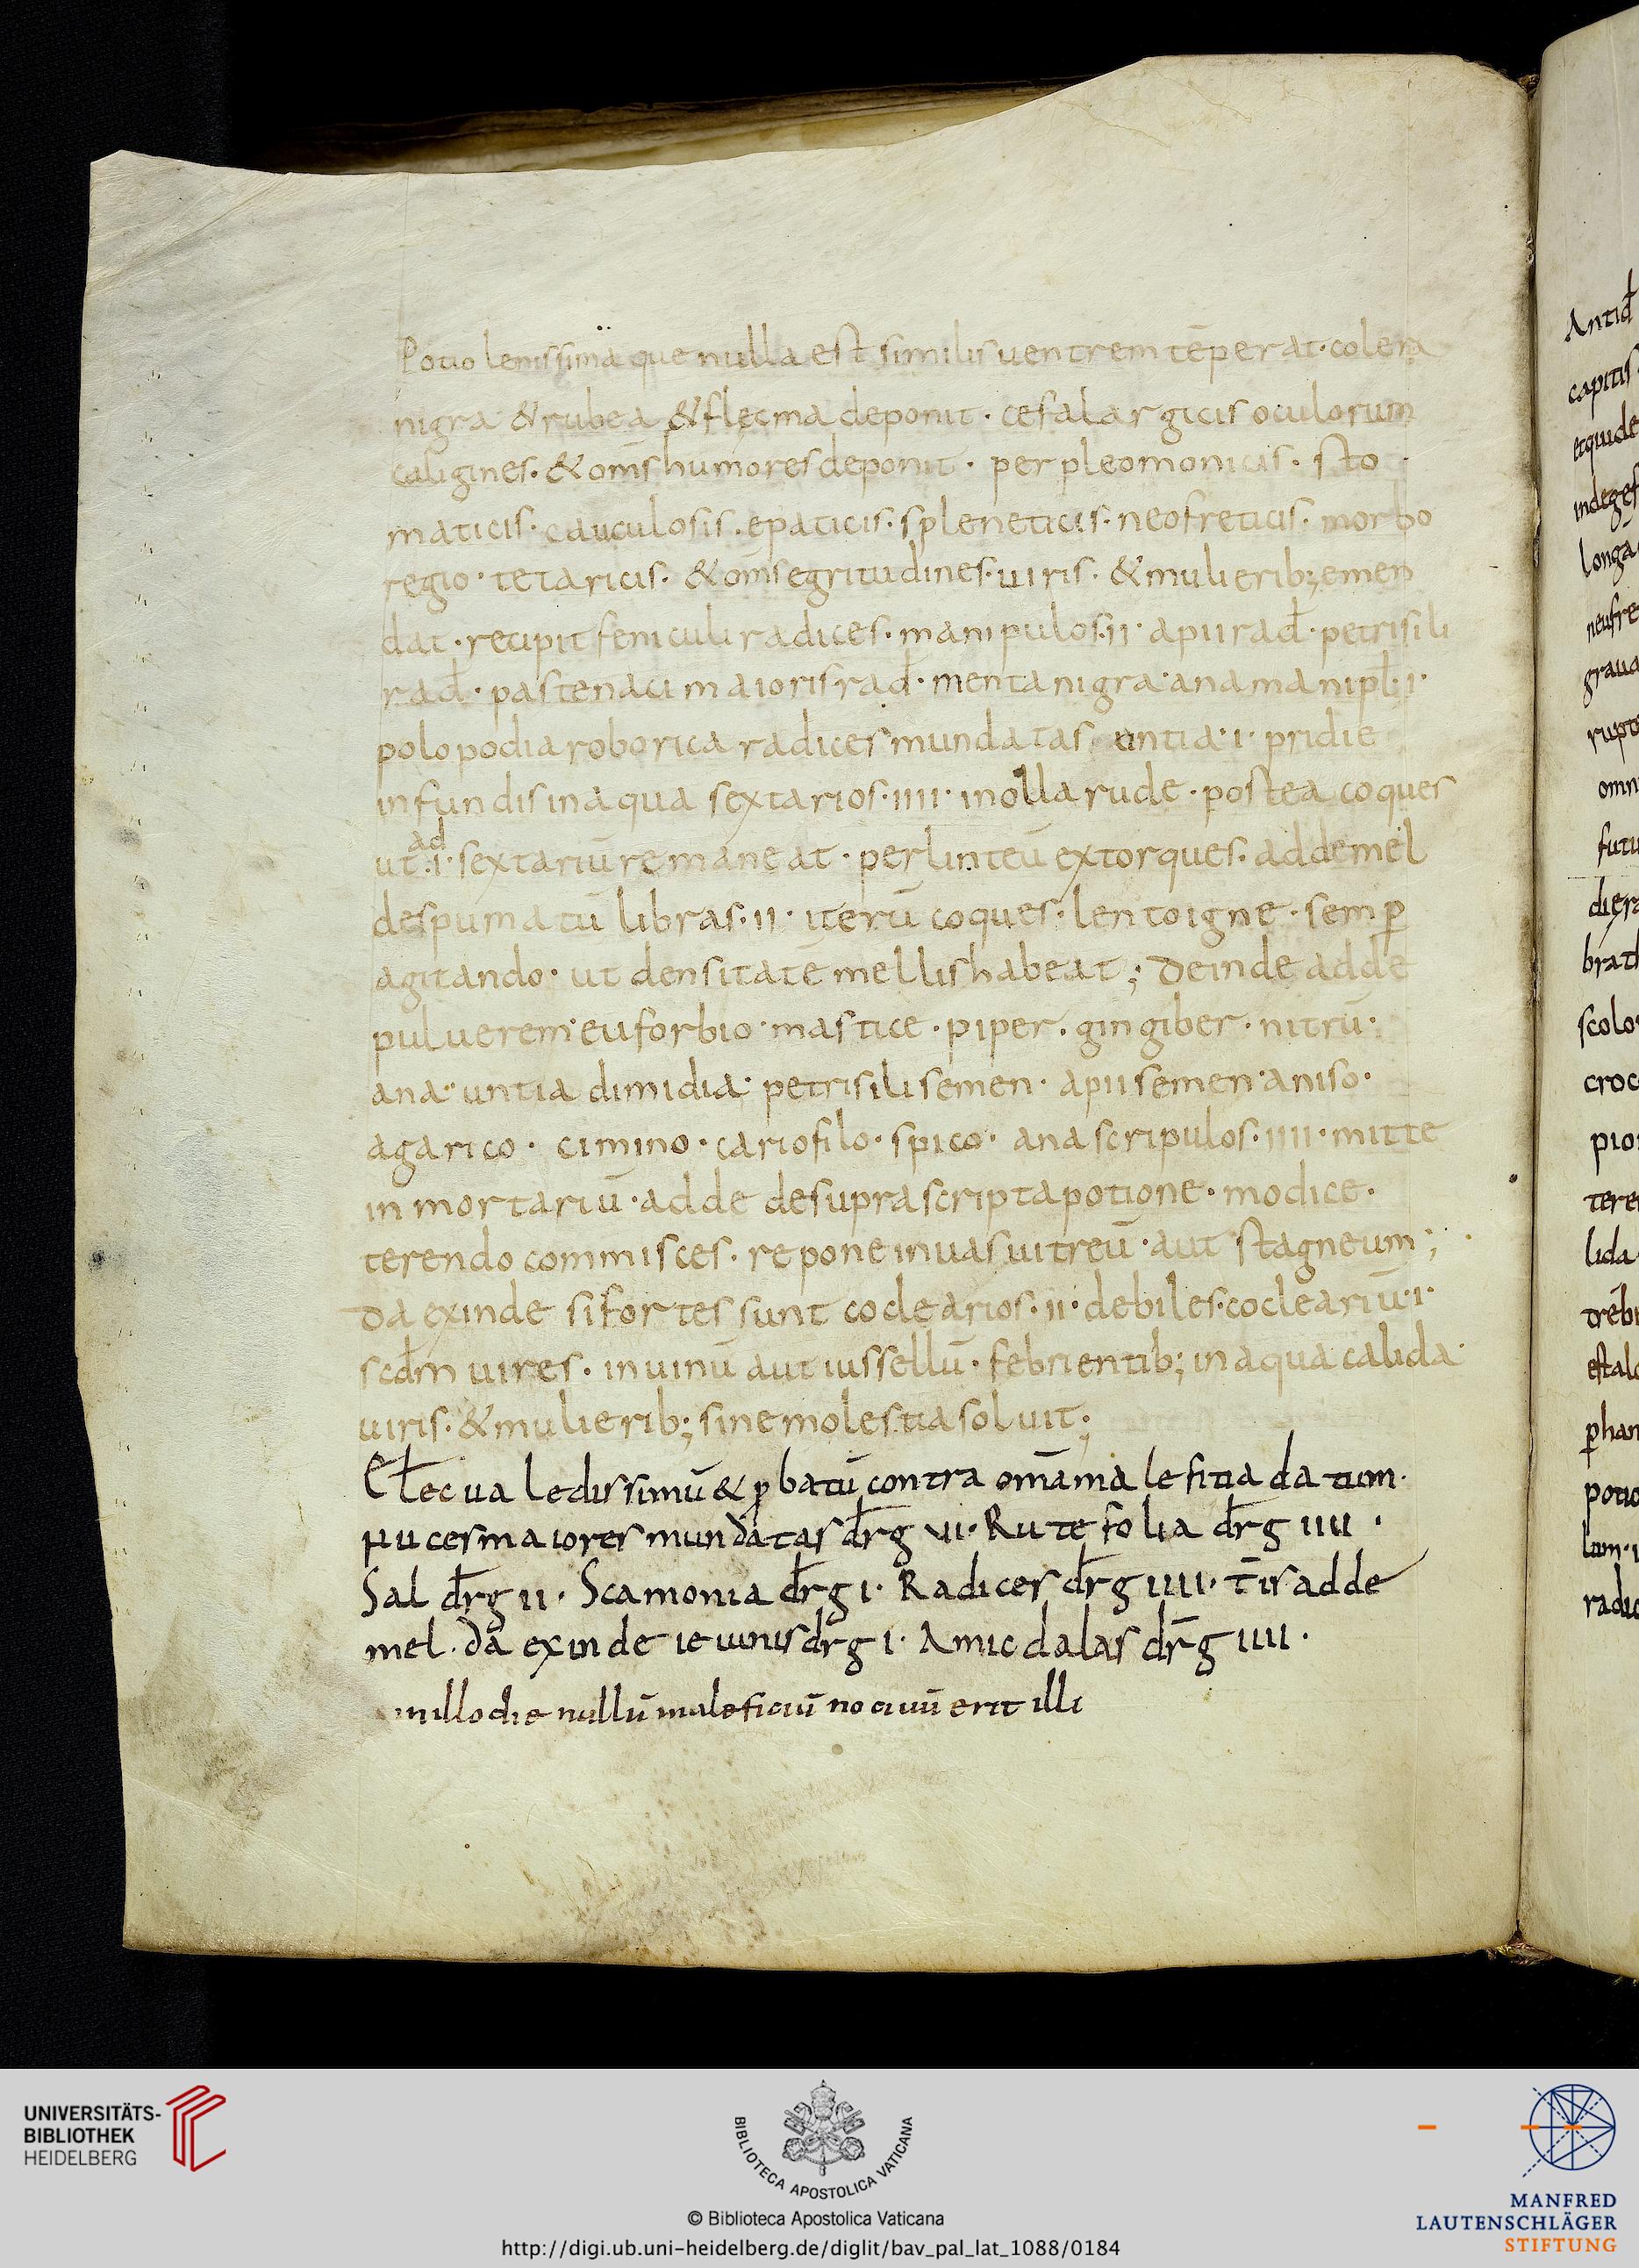 Potio lenissima que nulla est similis uentrem tēperat · colera
nigra & rubea & flecma deponit · cefalargicis oculorum
caligines · & oms̄ humores deponit · perpleomonicis · sto
maticis · cauculosis · epaticis · spleneticis · neofreticis · morbo
regio · tetaricis · & oms̄ egritudines · uiris · & mulierib; emen
dat · recipit feniculi radices · manipulos · ii · apii rad̄ · petrisili
rad̄ · pastenaci maioris rad̄ · menta nigra · ana manipl̄ · i ·
polopodia roborica radices mundatas untia · i · pridie
infundis in aqua sextarios · iiii · in olla rude · postea coques
ad
ut · i · sextariū remaneat · per linteū extorques · adde mel
despumatū libras · ii · iterū coques · lento igne · semꝑ
agitando · ut densitatē mellis habeat ; Deinde adde
puluerem · euforbio · mastice · piper · gingiber · nitrū ·
ana · untia dimidia · petrisili semen · apii semen · aniso ·
agarico · cimino · cariofilo · spico · ana scripulos · iiii · mitte
in mortariū · adde de suprascripta potione · modice ·
terendo commisces · repone in uas uitreū · aut stagneum ;
Da exinde si fortes sunt coclearios · ii · debiles · cocleariū · i ·
scdm̄ uires · in uinū aut iussellū · febrientib; in aqua calida ·
uiris · & mulierib; sine molestia soluit ;
ualedissimū & ꝓbatū contra omā malefitia datum ·
nuces maiores mundatas dr̄g vi · Rute folia dr̄g iiii ·
Sal dr̄g ii · Scamonia dr̄g i · Radices dr̄g iiii · t̄is adde
mel · da exinde ieiunis dr̄g i · Amicdalas dr̄g iiii ·
in illo die nullū maleficiū nociuū erit illi
Antid̄
capitis
longa
omni
croc
lida
potio
UNIVERSITÄTS-
BIBLIOTHEK
HEIDELBERG
BIBLIOTECA APOSTOLICA VATICANA
© Biblioteca Apostolica Vaticana
http://digi.ub.uni-heidelberg.de/diglit/bav_pal_lat_1088/0184
MANFRED
LAUTENSCHLÄGER
STIFTUNG